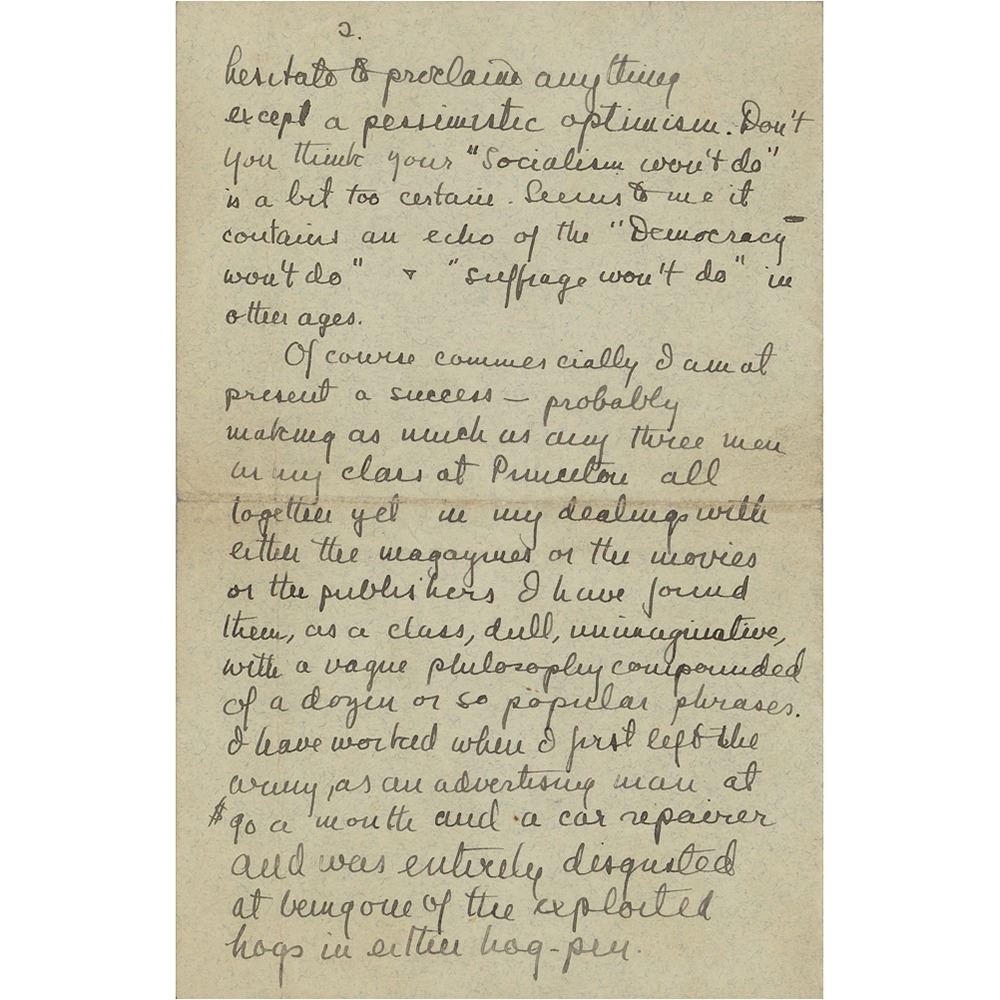 2.
hesitate to proclaim anything
except a pessimistic optimism. Don't
you think your "Socialism won't do"
is a bit too certain. Seems to me it
contains an echo of the "Democracy
won't do" + "suffrage won't do" in
other ages.
Of course commercially I am at
present a success — probably
making as much as any three men
in my class at Princeton all
together yet in my dealings with
either the magazines or the movies
or the publishers I have found
them, as a class, dull, unimaginative,
with a vague philosophy compounded
of a dozen or so popular phrases.
I have worked when I first left the
army, as an advertising man at
$90 a month and a car repairer
and was entirely disgusted
at being one of the exploited
hogs in either hog-pen.